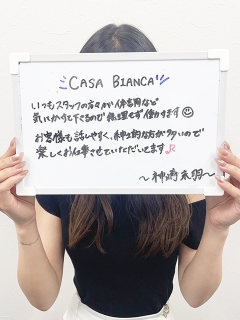 CASA BIANCA
いつもスタッフの方々が体調など
気にかけて下さるので無理せず働けます☺
お客様も話しやすく、紳士的な方が多いので
楽しくお仕事させていただいてます♪
〜神崎 〜